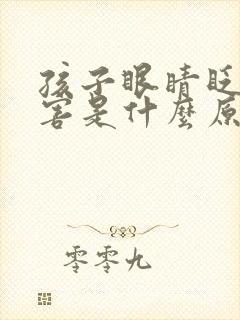 孩子眼睛眨
害是什麼原
零零九